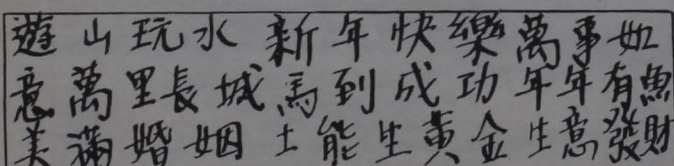 遊山玩水新年快樂萬事如
意萬里長城馬到成功年年有魚
美滿婚姻土能生黃金生意發財